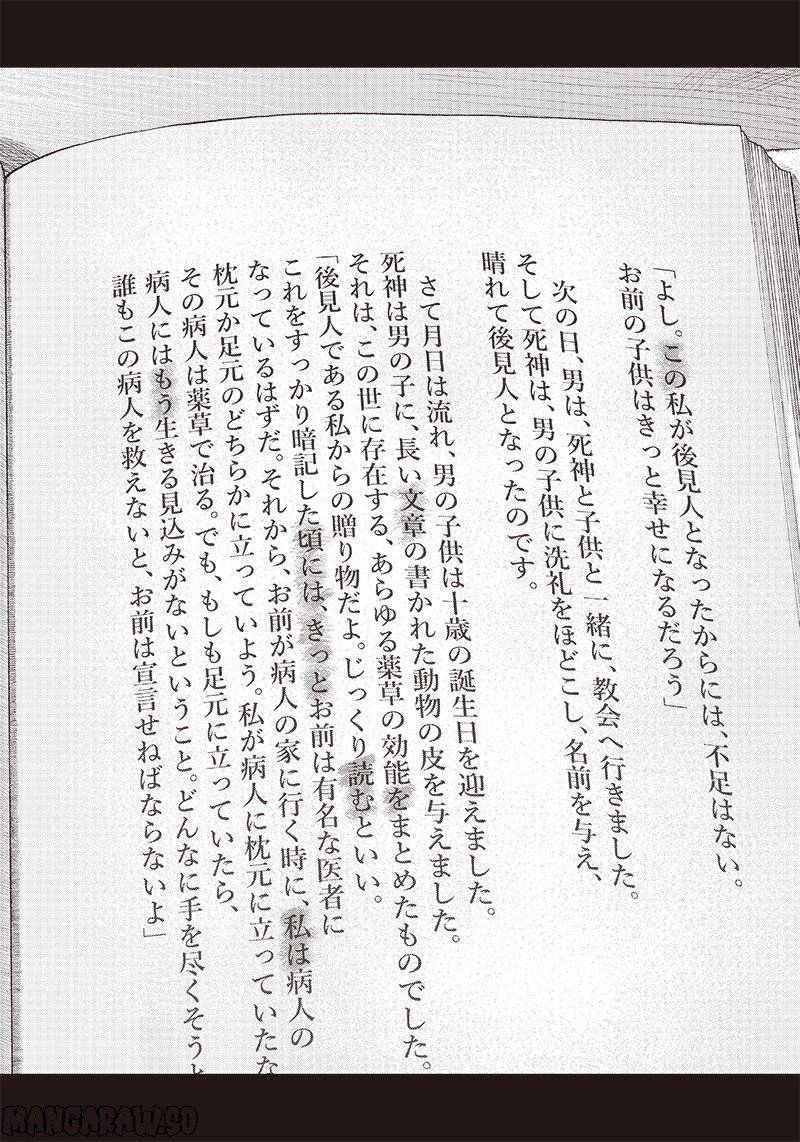 「よし。この私が後見人となったからには、不足はない。
お前の子供はきっと幸せになるだろう」
次の日、男は、死神と子供と一緒に、教会へ行きました。
そして死神は、男の子供に洗礼をほどこし、名前を与え、
晴れて後見人となったのです。
さて月日は流れ、男の子供は十歳の誕生日を迎えました。
死神は男の子に、長い文章の書かれた動物の皮を与えました。
それは、この世に存在する、あらゆる薬草の効能をまとめたものでした。
「後見人である私からの贈り物だよ。じっくり読むといい。
これをすっかり暗記した頃には、きっとお前は有名な医者に
なっているはずだ。それから、お前が病人の家に行く時に、私は病人の
枕元か足元のどちらかに立っていよう。私が病人に枕元に立っていたな
その病人は薬草で治る。でも、もしも足元に立っていたら、
病人にはもう生きる見込みがないということ。どんなに手を尽くそうと
誰もこの病人を救えないと、お前は宣言せねばならないよ」
MANGARAW.SO